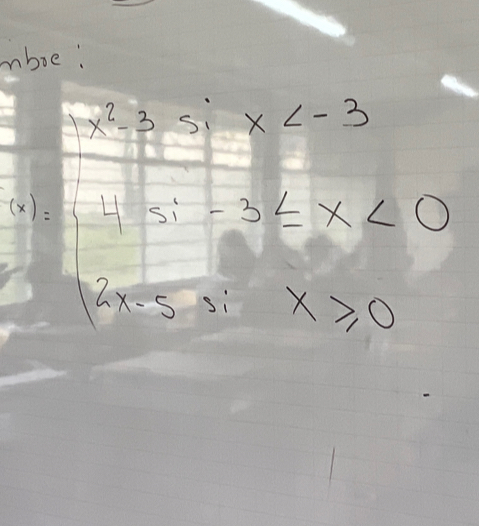 mbre:
x²-3 si x < -3
(x) = 4 si -3 ≤ x < 0
2x-5 si x ⩾ 0